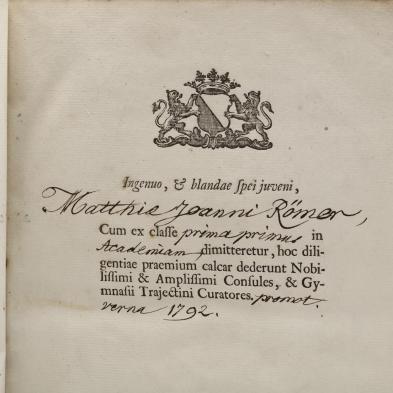 Ingenuo, & blandae ſpei juveni,
Matthiae Joanni Römer,
Cum ex claſſe prima primus in
Academiam dimitteretur, hoc dili-
gentiae praemium calcar dederunt Nobi-
liſſimi & Ampliſſimi Conſules, & Gy-
mnaſii Trajectini Curatores. promot.
verna 1792.